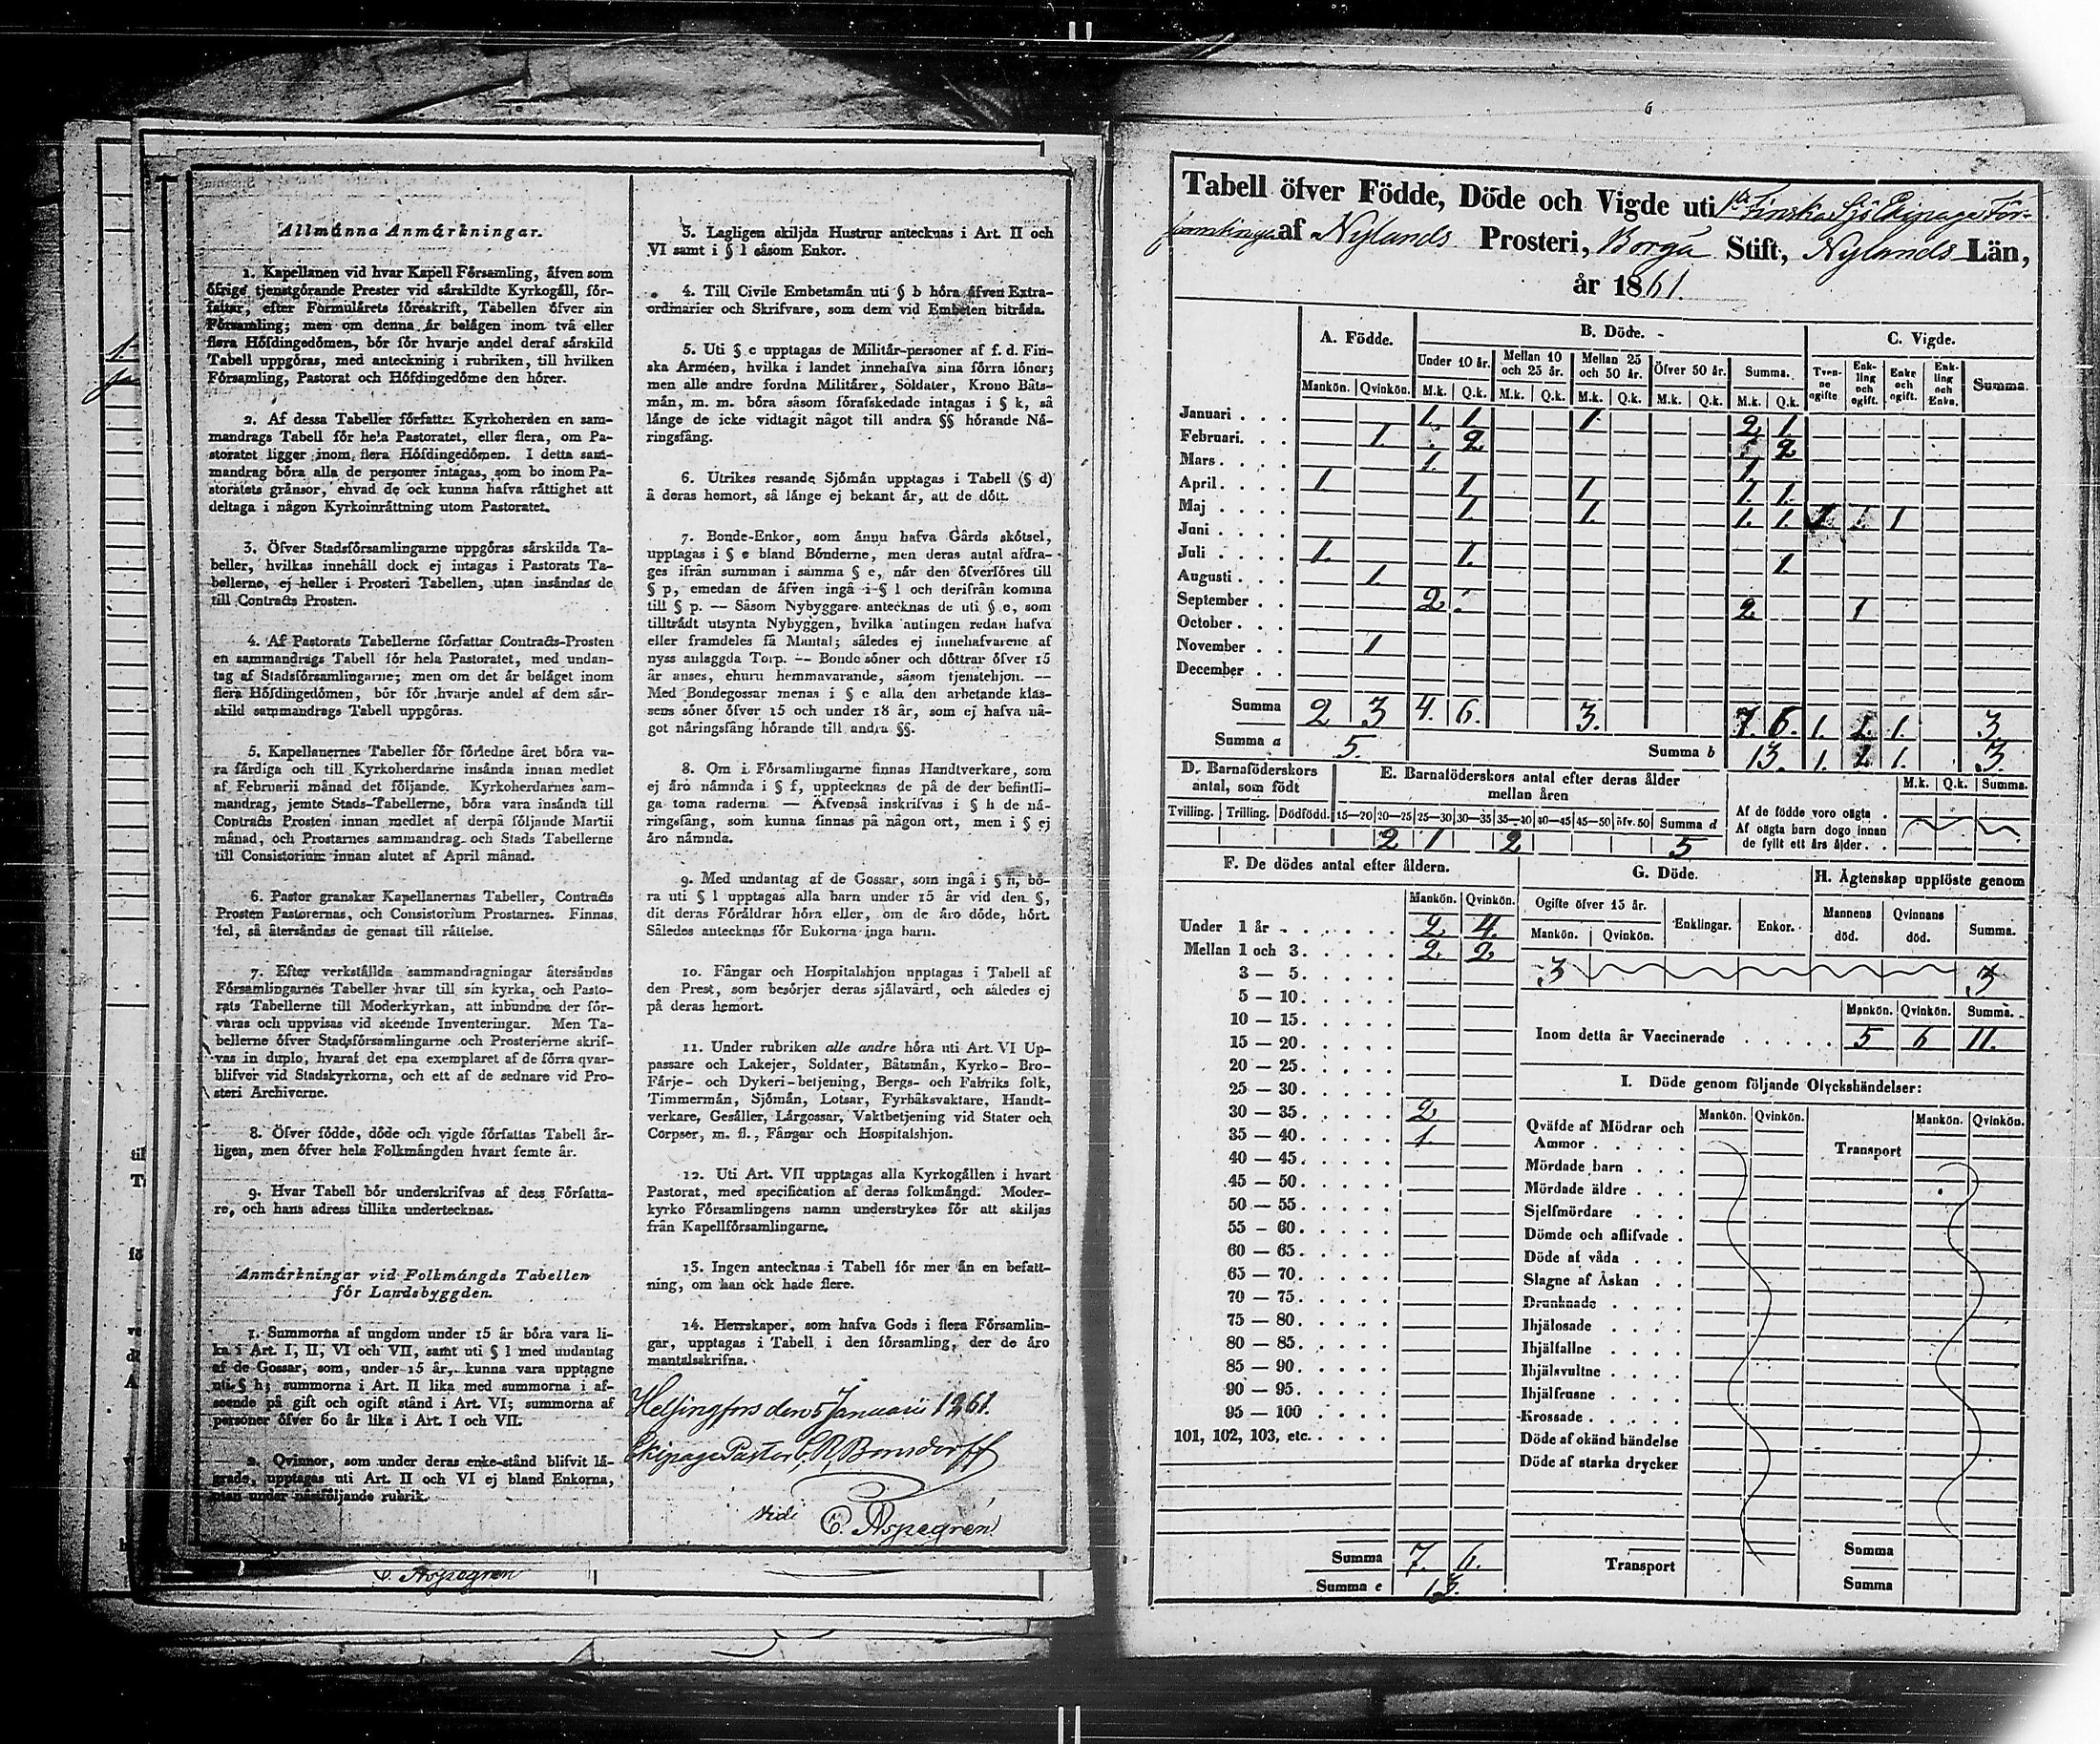 Allmånna Anmårkningar.
1. Kapellanen vid hvar Kapell Fórsamling, åfven som
ófrige tjenstgórande Prester vid sårskildte Kyrkogåll, fór-
fattar, efter Formulårets fóreskrift, Tabellen ófver sin
Fórsamling; men om denna år belågen inom två eller
flera Hófdingedómen, bór fór hvarje andel deraf sårskild
Tabell uppgóras, med anteckning i rubriken, till hvilken
Fórsamling, Pastorat och Hófdingedóme den hórer.
2. Af dessa Tabeller fórfattar Kyrkoherden en sam-
mandrags Tabell fór hela Pastoratet, eller flera, om Pa-
storatet ligger inom flera Hófdingedómen. I detta sam-
mandrag bóra alla de personer intagas, som bo inom Pa-
storatets grånsor, ehvad de ock kunna hafva råttighet att
deltaga i någon Kyrkoinråttning utom Pastoratet.
3. Öfver Stadsfórsamlingarne uppgóras sårskilda Ta-
beller, hvilkas innehåll dock ej intagas i Pastorats Ta-
bellerne, ej heller i Prosteri Tabellen, utan insåndas de
till Contracts Prosten.
4. Af Pastorats Tabellerne fórfattar Contracts-Prosten
en sammandrags Tabell fór hela Pastoratet, med undan-
tag af Stadsfórsamlingarne; men om det år belåget inom
flera Hófdingedómen, bór fór hvarje andel af dem sår-
skild sammandrags Tabell uppgóras.
5. Kapellanernes Tabeller fór fórledne året bóra va-
ra fårdiga och till Kyrkoherdarne insånda innan medlet
af Februarii månad det fóljande. Kyrkoherdarnes sam-
mandrag, jemte Stads-Tabellerne, bóra vara insånda till
Contracts Prosten innan medlet af derpå fóljande Martii
månad, och Prostarnes sammandrag och Stads Tabellerne
till Consistorium innan slutet af April månad.
6. Pastor granskar Kapellanernas Tabeller, Contracts
Prosten Pastorernas, och Consistorium Prostarnes. Finnas
fel, så återsåndas de genast till råttelse.
7. Efter verkstållda sammandragningar återsåndas
Fórsamlingarnes Tabeller hvar till sin kyrka, och Pasto-
rats Tabellerne till Moderkyrkan, att inbundna der fór-
varas och uppvisas vid skeende Inventeringar. Men Ta-
bellerne ófver Stadsfórsamlingarne och Prosterierne skrif-
vas in duplo, hvaraf det ena exemplaret af de fórra qvar-
blifver vid Stadskyrkorna, och ett af de sednare vid Pro-
steri Archiverne.
8. Öfver fódde, dóde och vigde fórfattas Tabell år-
ligen, men ófver hela Folkmångden hvart femte år.
9. Hvar Tabell bór underskrifvas af dess Fórfatta-
re, och hans adress tillika undertecknas.
Anmårkningar vid Folkmångds Tabellen
fór Landsbyggden.
1. Summorna af ungdom under 15 år bóra vara li-
ka i Art. I, II, VI och VII, samt uti § l med undantag
af de Gossar, som, under 15 år, kunna vara upptagne
uti § h; summorna i Art. II lika med summorna i af-
seende på gift och ogift stånd i Art. VI; summorna af
personer ófver 60 år lika i Art. I och VII.
2. Qvinnor, som under deras enke-stånd blifvit lå-
grade, upptagas uti Art. II och VI ej bland Enkorna,
utan under nåstfóljande rubrik.
3. Lagligen skiljda Hustrur antecknas i Art. II och
VI samt i § l såsom Enkor.
4. Till Civile Embetsmån uti § b hóra åfven Extra-
ordinarier och Skrifvare, som dem vid Embeten bitråda.
5. Uti § c upptagas de Militår-personer af f. d. Fin-
ska Arméen, hvilka i landet innehafva sina fórra lóner;
men alle andre fordna Militårer, Soldater, Krono Båts-
mån, m. m. bóra såsom fórafskedade intagas i § k, så
långe de icke vidtagit något till andra §§ hórande Nå-
ringsfång.
6. Utrikes resande Sjómån upptagas i Tabell (§ d)
å deras hemort, så långe ej bekant år, att de dótt.
7. Bonde-Enkor, som ånnu hafva Gårds skótsel,
upptagas i § e bland Bónderne, men deras antal afdra-
ges ifrån summan i samma § e, når den ófverfóres till
§ p, emedan de åfven ingå i § l och derifrån komma
till § p. — Såsom Nybyggare antecknas de uti § e, som
tilltrådt utsynta Nybyggen, hvilka antingen redan hafva
eller framdeles få Mantal; således ej innehafvarene af
nyss anlaggda Torp. — Bonde sóner och dóttrar ófver 15
år anses, ehuru hemmavarande, såsom tjenstehjon. —
Med Bondegossar menas i § e alla den arbetande klas-
sens sóner ófver 15 och under 18 år, som ej hafva nå-
got nåringsfång hórande till andra §§.
8. Om i Fórsamlingarne finnas Handtverkare, som
ej åro nåmnda i § f, upptecknas de på de der befintli-
ga toma raderna. — Åfvenså inskrifvas i § h de nå-
ringsfång, som kunna finnas på någon ort, men i § ej
åro nåmnda.
9. Med undantag af de Gossar, som ingå i § h, bó-
ra uti § l upptagas alla barn under 15 år vid den §,
dit deras Fóråldrar hóra eller, om de åro dóde, hórt.
Således antecknas fór Enkorna inga barn.
10. Fångar och Hospitalshjon upptagas i Tabell af
den Prest, som besórjer deras sjålavård, och således ej
på deras hemort.
11. Under rubriken alle andre hóra uti Art. VI Up-
passare och Lakejer, Soldater, Båtsmån, Kyrko- Bro-
Fårje- och Dykeri-betjening, Bergs- och Fabriks folk,
Timmermån, Sjómån, Lotsar, Fyrbåksvaktare, Handt-
verkare, Gesåller, Lårgossar, Vaktbetjening vid Stater och
Corpser, m. fl., Fångar och Hospitalshjon.
12. Uti Art. VII upptagas alla Kyrkogållen i hvart
Pastorat, med specification af deras folkmångd. Moder-
kyrko Fórsamlingens namn understrykes fór att skiljas
från Kapellfórsamlingarne.
13. Ingen antecknas i Tabell fór mer ån en befatt-
ning, om han ock hade flere.
14. Herrskaper, som hafva Gods i flera Fórsamlin-
gar, upptagas i Tabell i den fórsamling, der de åro
mantalsskrifna.
Helsingfors den 5 Januarii 1861.
Ekipage Pastor C. R. Bonsdorff
Vidi
C. Aspegren
C. Aspegren
6
Tabell öfver Födde, Döde och Vigde uti 1sta Finska Sjö Ekipage För-
samlinga af Nylands Prosteri, Borgå Stift, Nylands Län,
år 1861.
A. Födde. B. Döde. C. Vigde.
Under 10 år. Mellan 10 och 25 år. Mellan 25 och 50 år. Öfver 50 år. Summa. Tven-ne ogifte. Enk-ling och ogift. Enke och ogift. Enk-ling och Enka. Summa.
Mankön. Qvinkön. M.k. Q.k. M.k. Q.k. M.k. Q.k. M.k. Q.k. M.k. Q.k.
Januari . . . 1. 1. 1. 2. 1.
Februari. . . 1. 2 2
Mars . . . . 1. 1.
April. . . . 1. 1. 1. 1. 1.
Maj . . . . 1. 1. 1. 1. 1. 1. 1
Juni . . . .
Juli . . . . 1. 1. 1.
Augusti . . . 1.
September . . 2. 2. 1
October . . .
November . . 1
December . .
Summa 2 3 4. 6. 3. 7. 6. 1. 1. 1. 3.
Summa a 5. Summa b 13. 1. 1. 3
D. Barnaföderskors antal, som födt
E. Barnaföderskors antal efter deras ålder mellan åren
Tvilling. Trilling. Dödfödd. 15—20 20—25 25—30 30—35 35—40 40—45 45—50 öfv. 50 Summa d
2 1 2 5
M.k. Q.k. Summa.
Af de födde voro oägta .
Af oägta barn dogo innan
de fyllt ett års ålder . .
F. De dödes antal efter åldern.
Mankön. Qvinkön.
Under 1 år . . . . . . 2. 4.
Mellan 1 och 3. . . . . 2. 2
3 — 5. . . . .
5 — 10. . . . .
10 — 15. . . . .
15 — 20. . . . .
20 — 25. . . . .
25 — 30. . . . .
30 — 35. . . . . 2.
35 — 40. . . . . 1.
40 — 45. . . . .
45 — 50. . . . .
50 — 55. . . . .
55 — 60. . . . .
60 — 65. . . . .
65 — 70. . . . .
70 — 75. . . . .
75 — 80. . . . .
80 — 85. . . . .
85 — 90. . . . .
90 — 95. . . . .
95 — 100 . . . .
101, 102, 103, etc. . . . .
Summa 7. 6.
Summa e 13.
G. Döde.
Ogifte öfver 15 år. Enklingar. Enkor.
Mankön. Qvinkön.
3
H. Ägtenskap upplöste genom
Mannens död. Qvinnans död. Summa.
3
Mankön. Qvinkön. Summa.
Inom detta år Vaccinerade . . . . . 5 6 11.
I. Döde genom följande Olyckshändelser:
Mankön. Qvinkön. Mankön. Qvinkön.
Qväfde af Mödrar och
Ammor . . . . . Transport
Mördade barn . . . .
Mördade äldre . . .
Sjelfmördare . . .
Dömde och aflifvade .
Döde af våda . . .
Slagne af Åskan . .
Drunknade . . . .
Ihjälosade . . . .
Ihjälfallne . . . .
Ihjälsvultne . . . .
Ihjälfrusne . . . .
Krossade . . . . .
Döde af okänd händelse
Döde af starka drycker
Transport
Summa
Summa